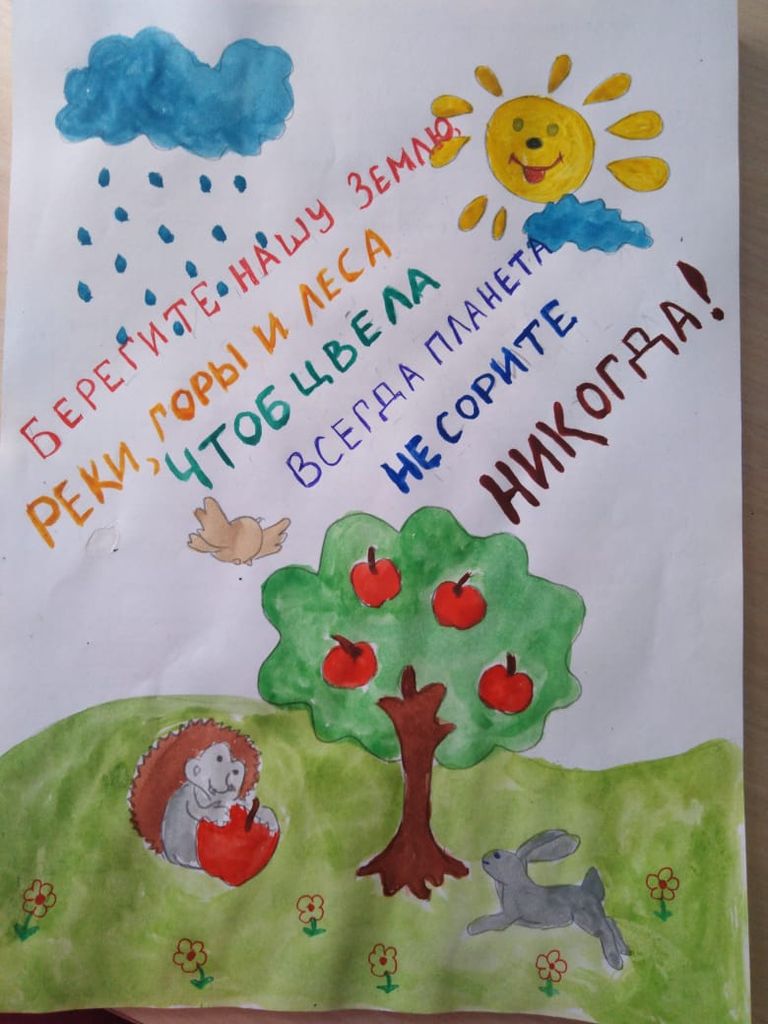 БЕРЕГИТЕ НАШУ ЗЕМЛЮ,
РЕКИ, ГОРЫ И ЛЕСА
ЧТОБ ЦВЕЛА
ВСЕГДА ПЛАНЕТА
НЕ СОРИТЕ
НИКОГДА!